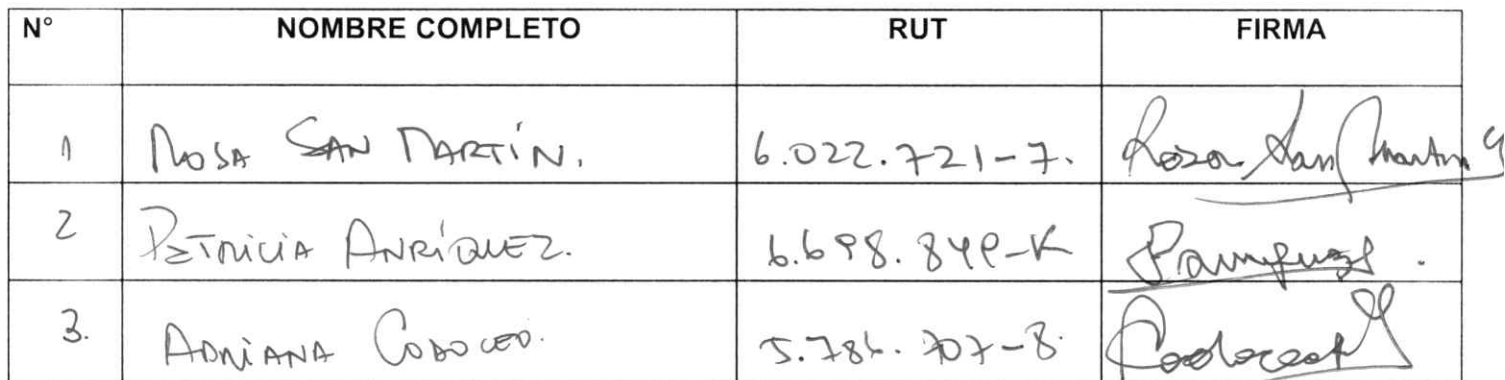 N° NOMBRE COMPLETO RUT FIRMA
1 ROSA SAN MARTÍN. 6.022.721-7. Rosa San Martin
2 PETRICIA ANRÍQUEZ. 6.698.849-K
3. ADRIANA CODOCEO. 5.786.707-8.